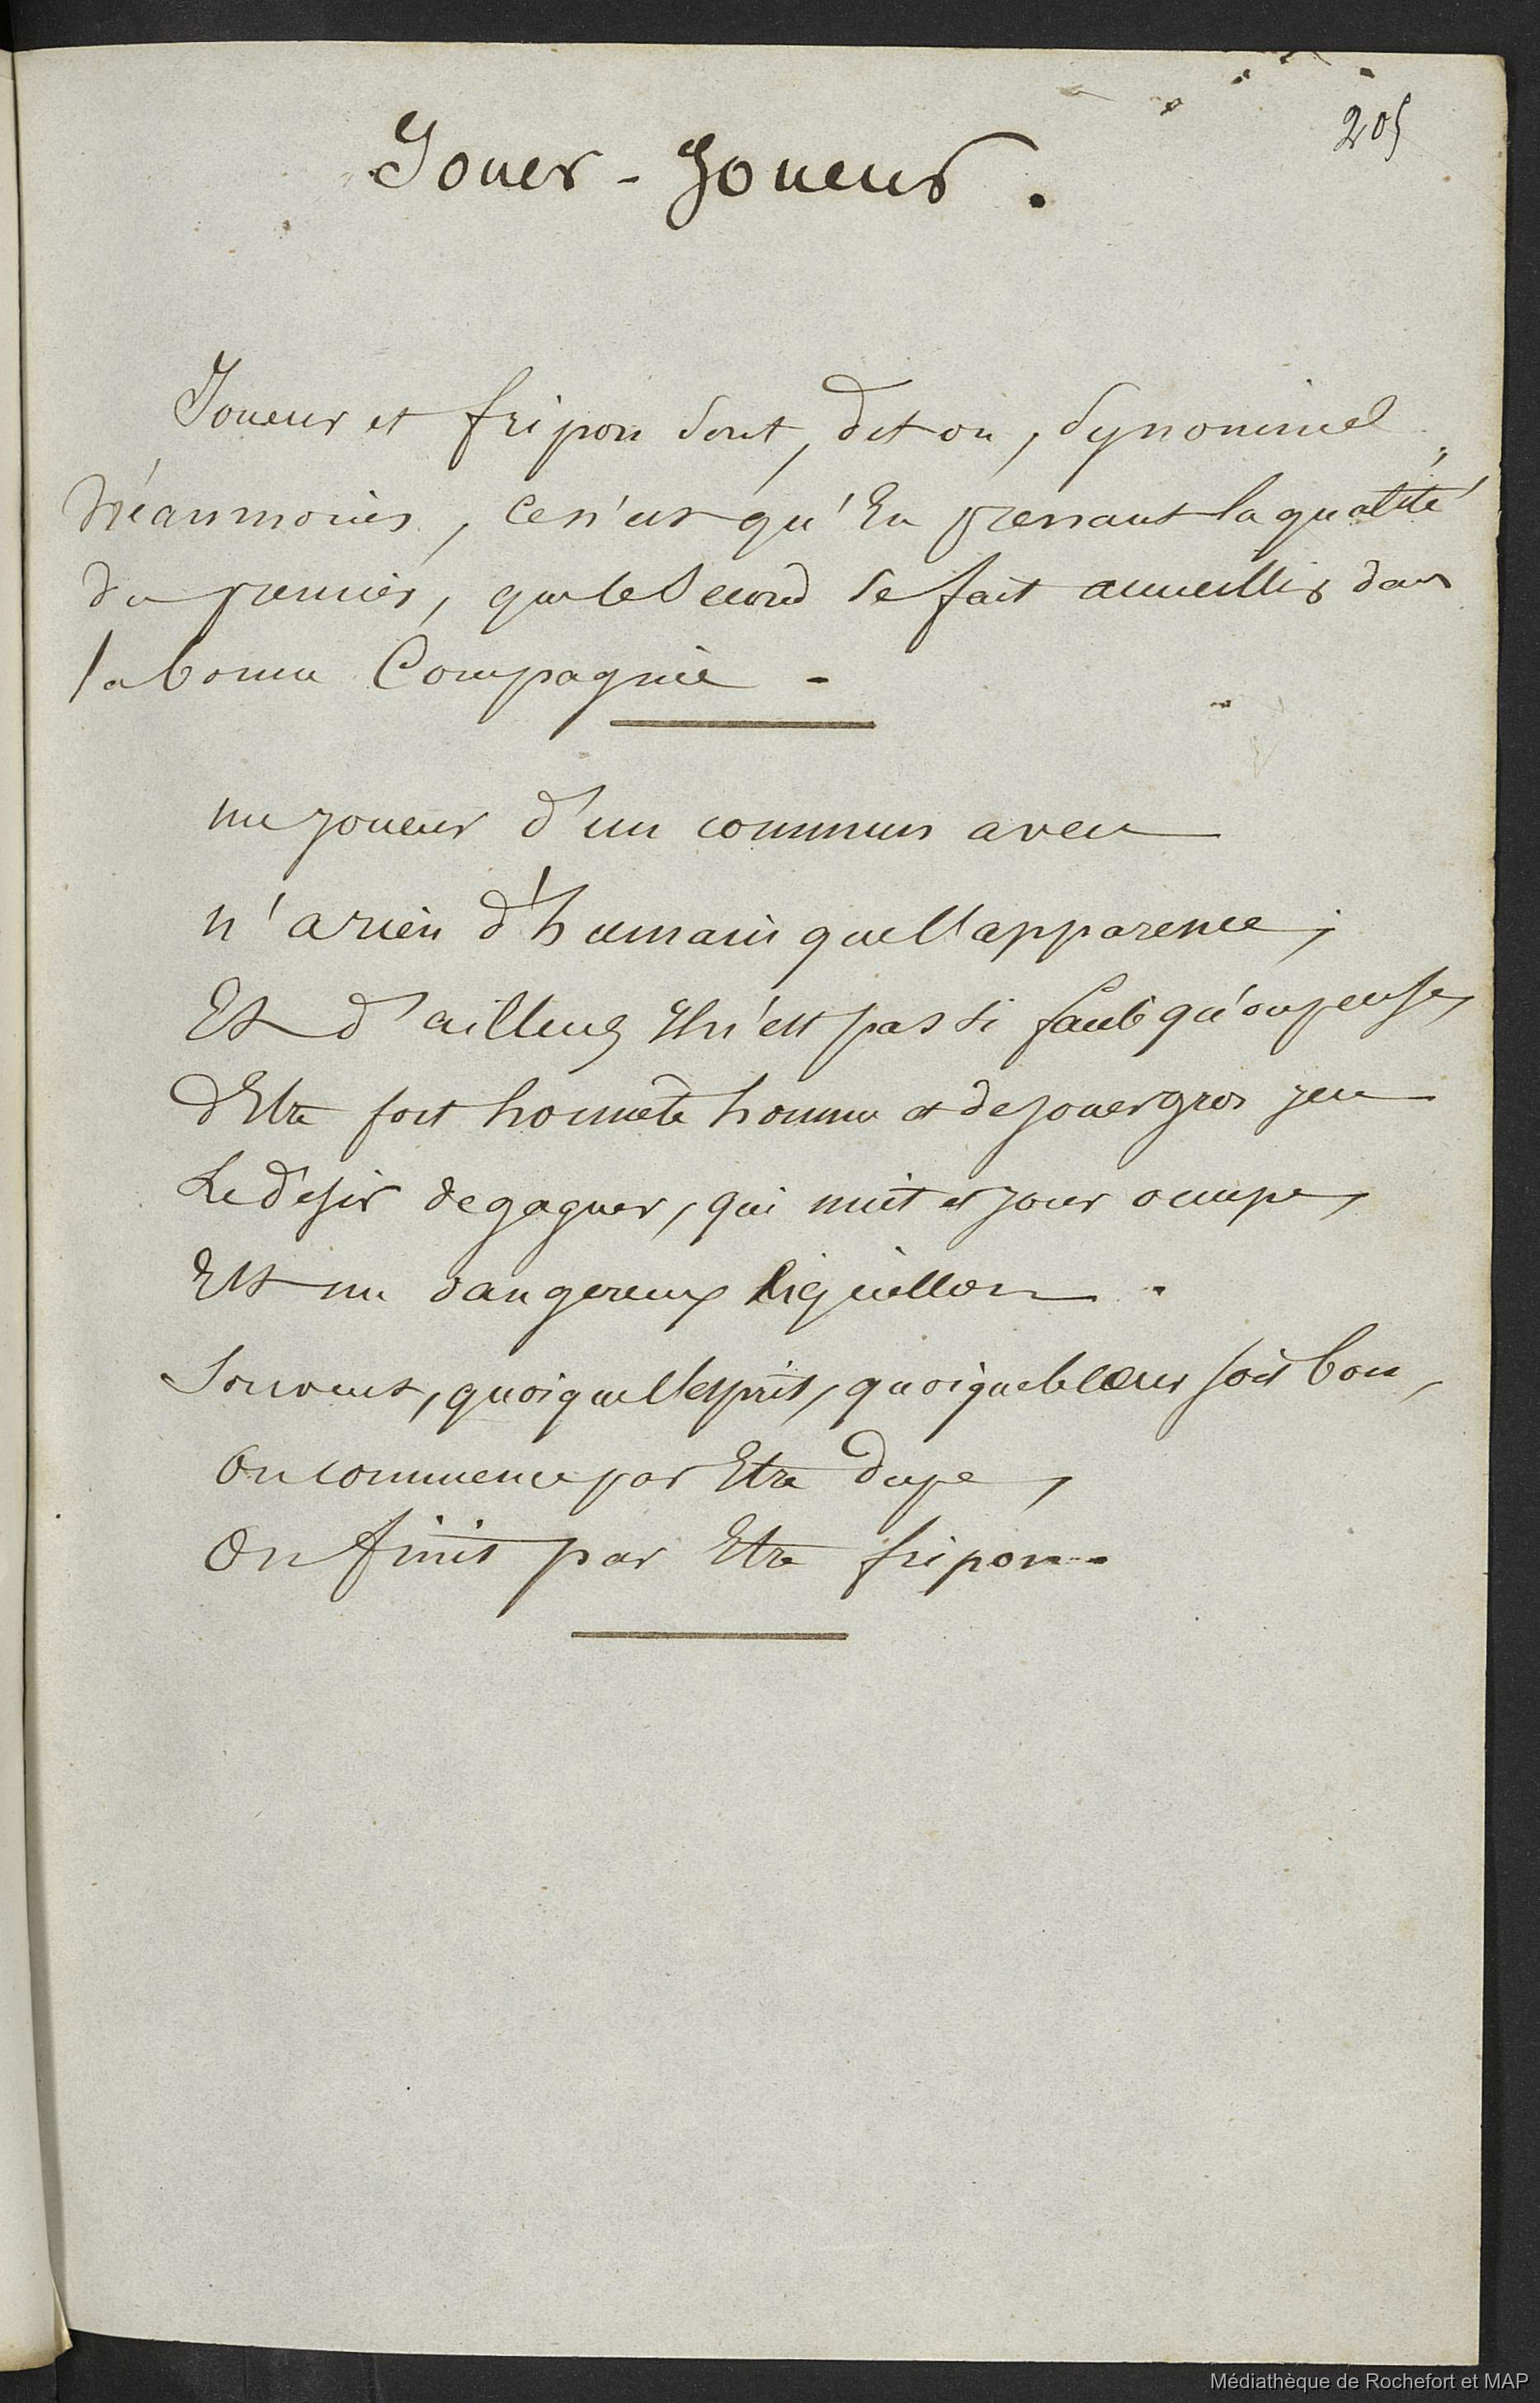 205
Jouer - Joueur.
Joueur et fripon sont, dit on, synonimes,
Néanmoins, ce n'est qu'En prenant la qualité
du premier, que le Second se fait accueillir dans
la bonne Compagnie -
un joueur d'un commun aveu
n'a rien d'humain que l'apparence;
Et d'ailleurs Il n'est pas si facile qu'on pense,
d'Etre fort honnête homme et de jouer gros jeu
Le désir de gagner, qui nuit et jour occupe,
Est un dangereux aiguillon.
Souvent, quoique l'esprit, quoique le cœur soit bon,
on commence par Etre dupe,
On finit par Etre fripon.
Médiathèque de Rochefort et MAP